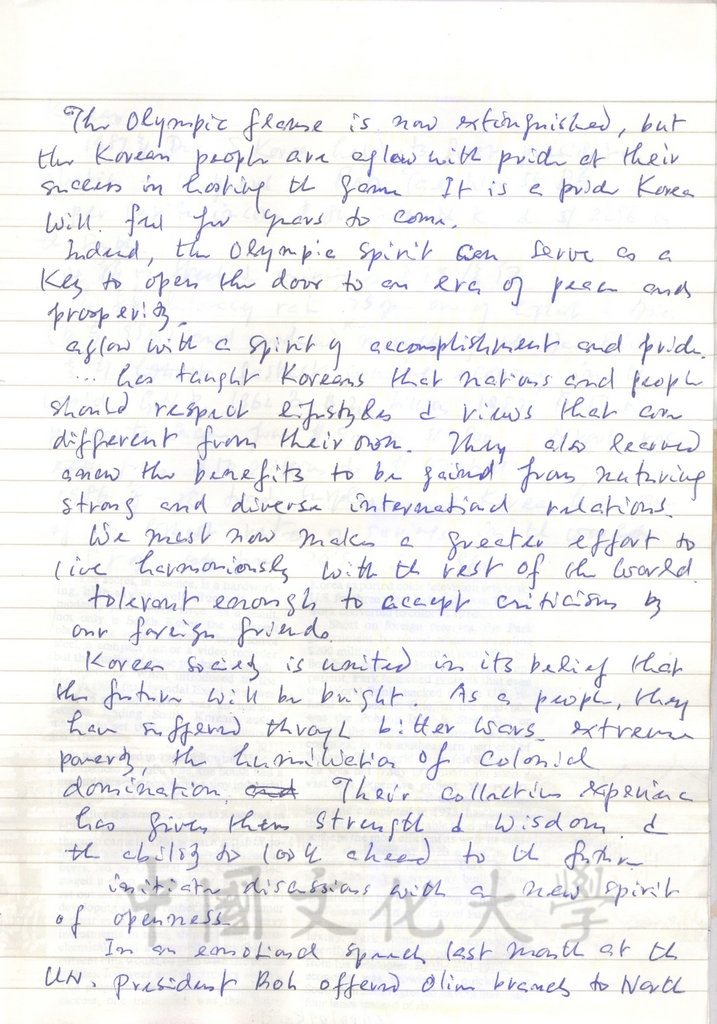 The Olympic flame is now extinguished, but
the Korean people are aglow with pride at their
success in hosting the game It is a pride Korea
will. feel for years to come.
Indeed, the Olympic spirit can serve as a
key to open the door to an era of peace and
prosperity.
aglow with a spirit of accomplishment and pride.
... has taught Koreans that nations and people
should respect lifestyles & views that are
different from their own. They also learned
anew the benefits to be gained from nuturing
strong and diverse international relations.
We must now make a greater effort to
live harmoniously with the rest of the world.
tolerant enough to accept criticism by
our foreign friends.
Korean society is united in its belief that
the future will be bright. As a people, they
have suffered through bitter wars. extreme
poverty, the humiliation of colonial
domination, and Their collective experience
has given them strength & wisdom. &
the ability to look ahead to the future
initiate discussions with a new spirit
of openness.
中國文化大學
In an emotional speech last month at the
UN. President Roh offered olive branch to North